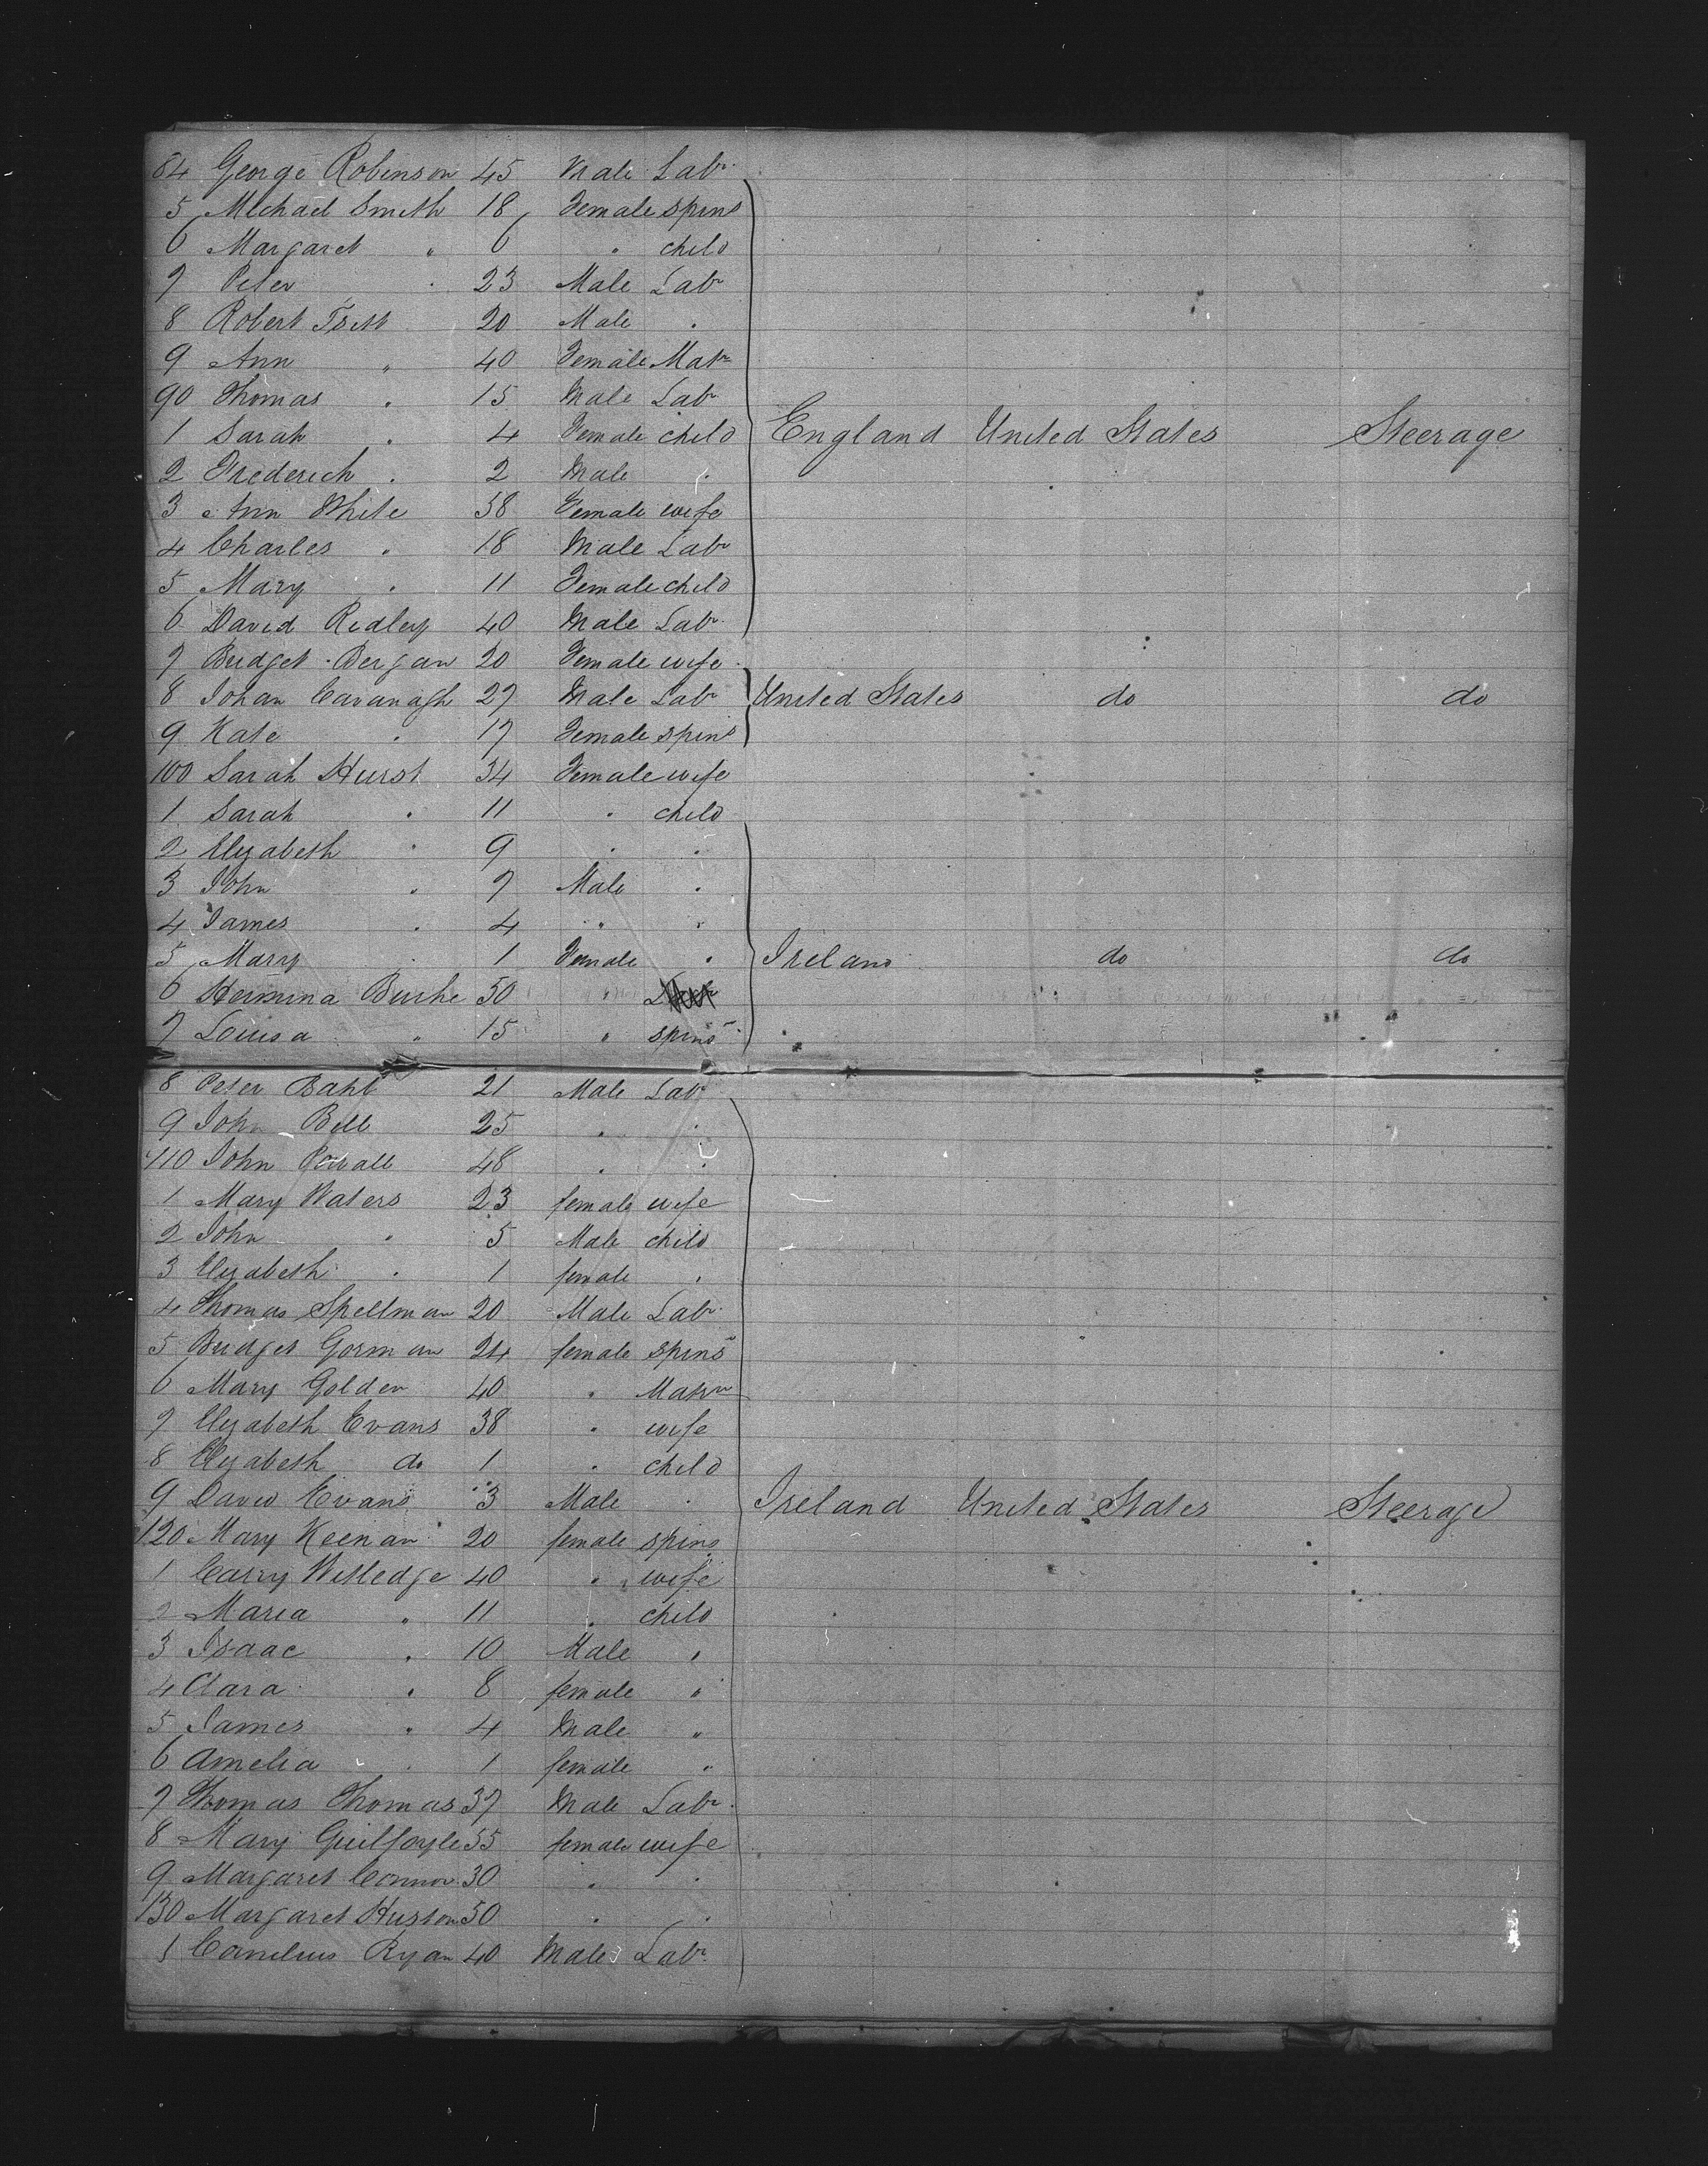 84 George Robinson 45 Male Labr
5 Michael Smith 18 Female spins
6 Margaret " 6 " child
7 Peter " 23 Male Labr
8 Robert 20 Male "
9 Ann " 40 Female Matr
90 Thomas " 15 Male Labr
1 Sarah " 4 Female child England United States Steerage
2 Frederich " 2 Male "
3 Ann White 38 Female wife
4 Charles " 18 Male Labr
5 Mary " 11 Female child
6 David Ridley 40 Male Labr
7 Bridget Bergan 20 Female wife
8 Johan Cavanagh 27 Male Labr United States do do
9 Kate " 17 Female spins
100 Sarah Hurst 34 Female wife
1 Sarah " 11 " child
2 Elizabeth " 9 " "
3 John " 7 Male "
4 James " 4 " "
5 Mary " 1 Female " Ireland do do
6 Hermina Burke 50 "
7 Louisa " 15 " spins
8 Peter Bahl 21 Male Labr
9 John Bell 25 " "
110 John 48 " "
1 Mary Waters 23 female wife
2 John " 5 Male child
3 Elizabeth " 1 female "
4 Thomas Spellman 20 Male Labr
5 Bridget Gorman 24 female spins
6 Mary Golden 40 " Matrn
7 Elizabeth Evans 38 " wife
8 Elizabeth do 1 " child
9 David Evans 3 Male " Ireland United States Steerage
120 Mary Keenan 20 female spins
1 Carry Witledge 40 " wife
2 Maria " 11 " child
3 Isaac " 10 Male "
4 Clara " 8 female "
5 James " 4 Male "
6 Amelia " 1 female "
7 Thomas Thomas 37 Male Labr
8 Mary Guilfoyle 55 female wife
9 Margaret Connor 30 " "
130 Margaret Huston 50 " "
1 Cornelius Ryan 40 Male Labr